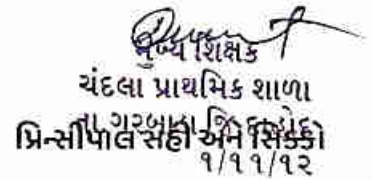 મુખ્ય શિક્ષક
ચંદલા પ્રાથમિક શાળા
તા ગરબાડા જિ દાહોદ
પ્રિન્સીપાલ સહી અને સિક્કો
૧/૧૧/૧૨